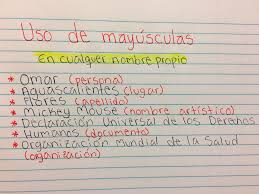 Uso de mayúsculas
En cualquier nombre propio
* Omar (persona)
* Aguascalientes (lugar)
* Flores (apellido)
* Mickey Mouse (nombre artístico)
* Declaración Universal de los Derechos
* Humanos (documento)
* Organización Mundial de la Salud
(organización)